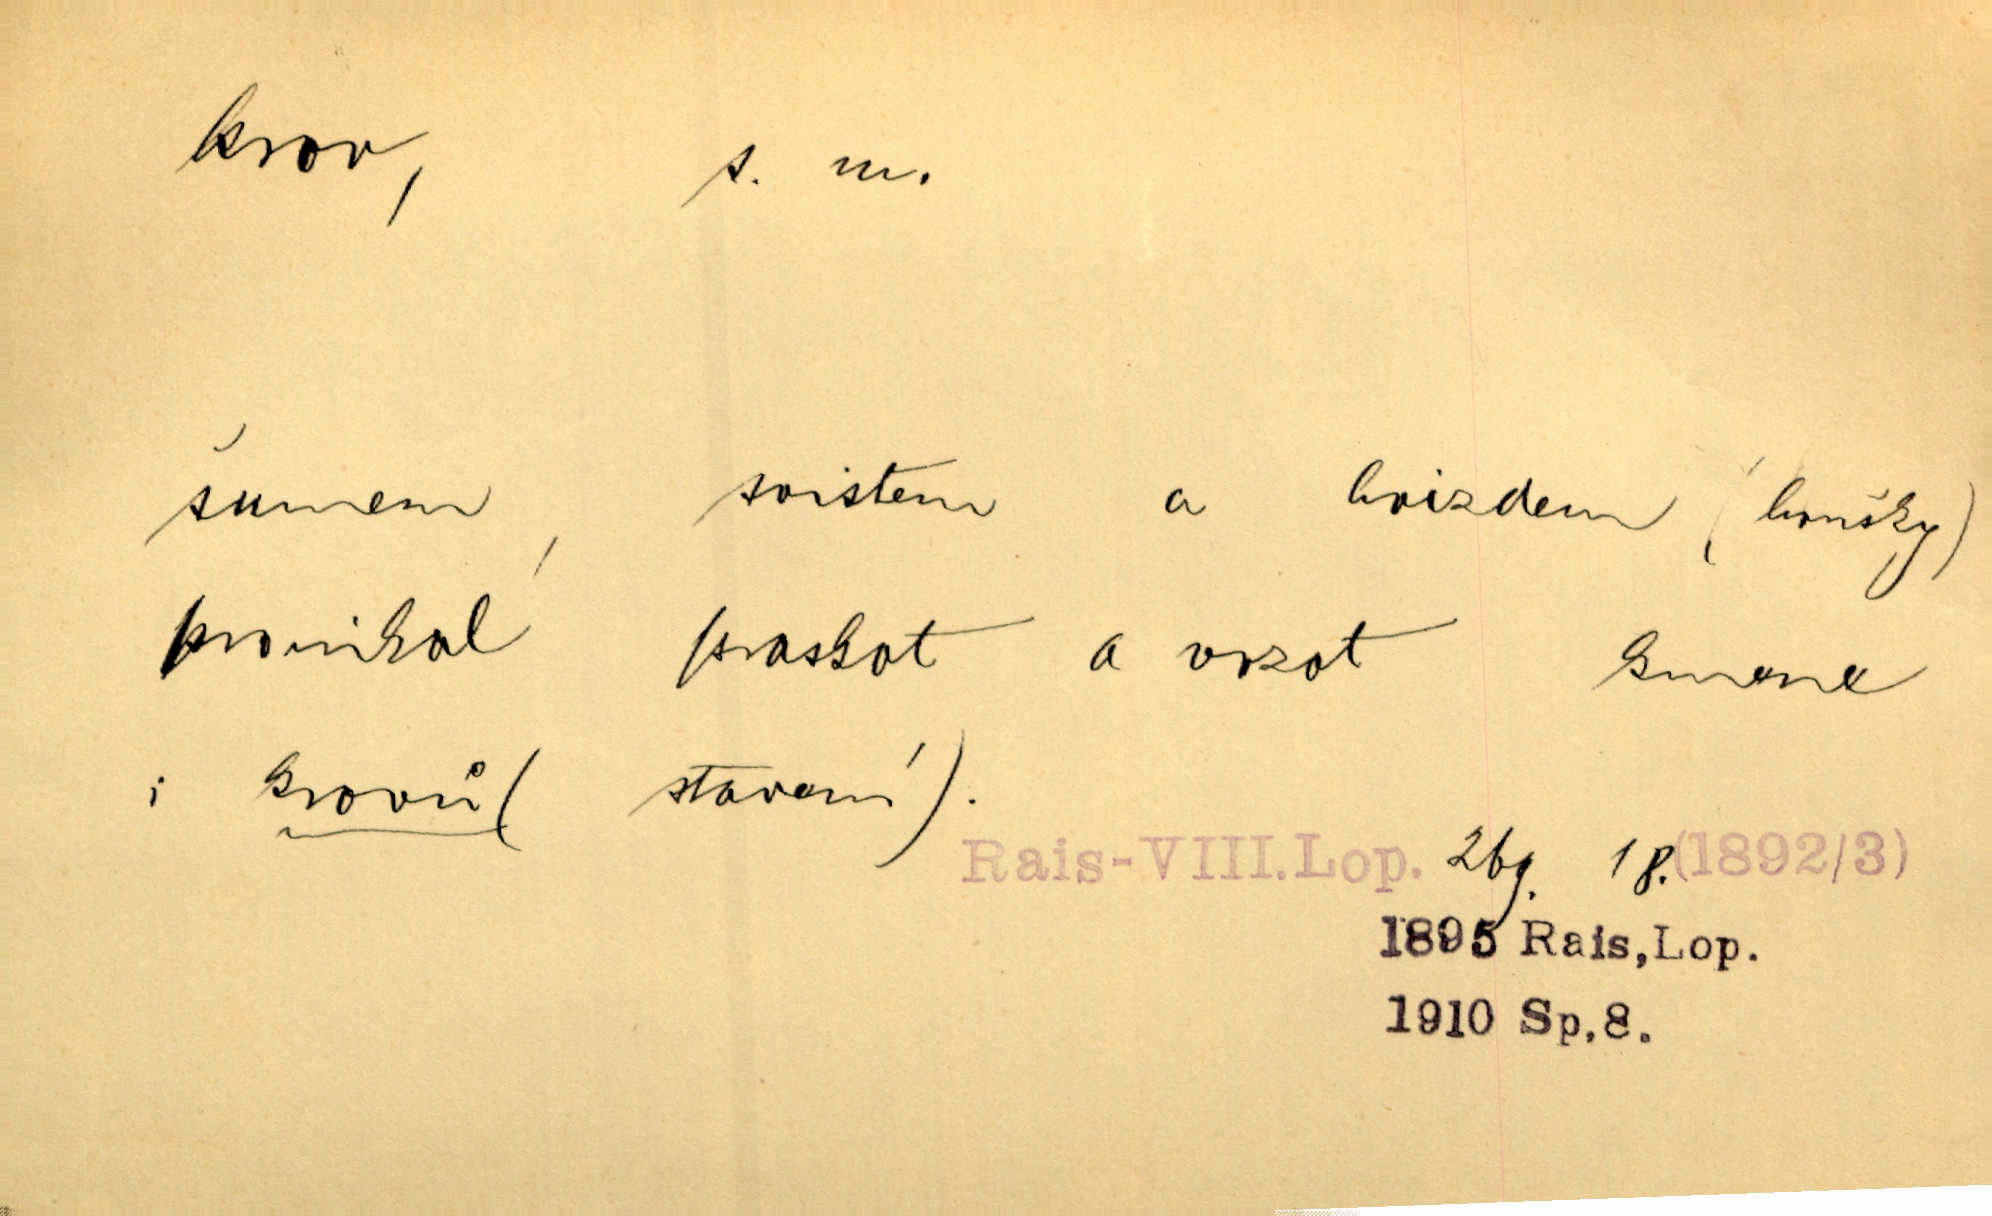 krov, s. m.
šumem, svistem a hvizdem (houšky)
pronikal praskot a vrzot kmene
i krovů (stavení).
Rais-VIII.Lop. 26g. 18. (1892/3)
1895 Rais,Lop.
1910 Sp,8.